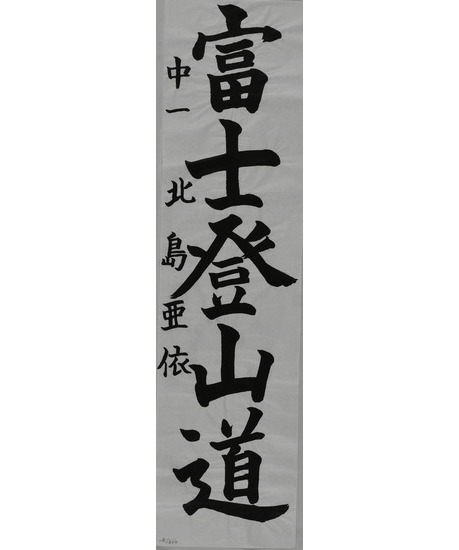 富士登山道
中一 北島亜依